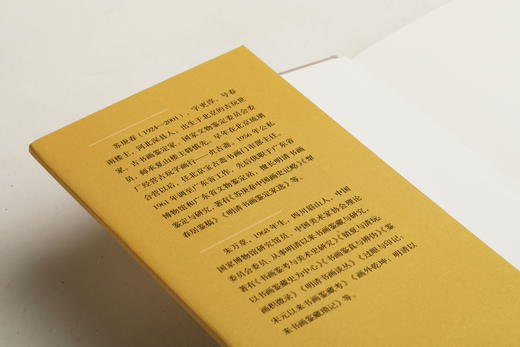 苏庚春（1924—2001），字更淳，号春
雨楼主，河北深县人，出生于北京的古玩世
家，古书画鉴定家、国家文物鉴定委员会委
员，师承夏山楼主韩慎先，早年在北京琉璃
厂经营古玩字画行——贞古斋，1956年公私
合营以后，任北京宝古斋书画门市部主任，
1961年调至广东省工作，先后供职于广东省
博物馆和广东省文物鉴定站，擅长明清书画
鉴定与研究。著有《苏庚春中国画史记略》《犁
春居鉴稿》《明清书画鉴定家选》等。
朱万章，1968年生，四川眉山人，中国
国家博物馆研究馆员、中国美术家协会理论
委员会委员，从事明清以来书画鉴藏与研究。
著有《书画鉴考与美术史研究》《销夏与清玩：
以书画鉴藏史为中心》《书画鉴真与辨伪》《鉴
画积微录》《明清书画谈丛》《过眼与印记：
宋元以来书画鉴藏考》《画外乾坤：明清以
来书画鉴藏琐记》等。